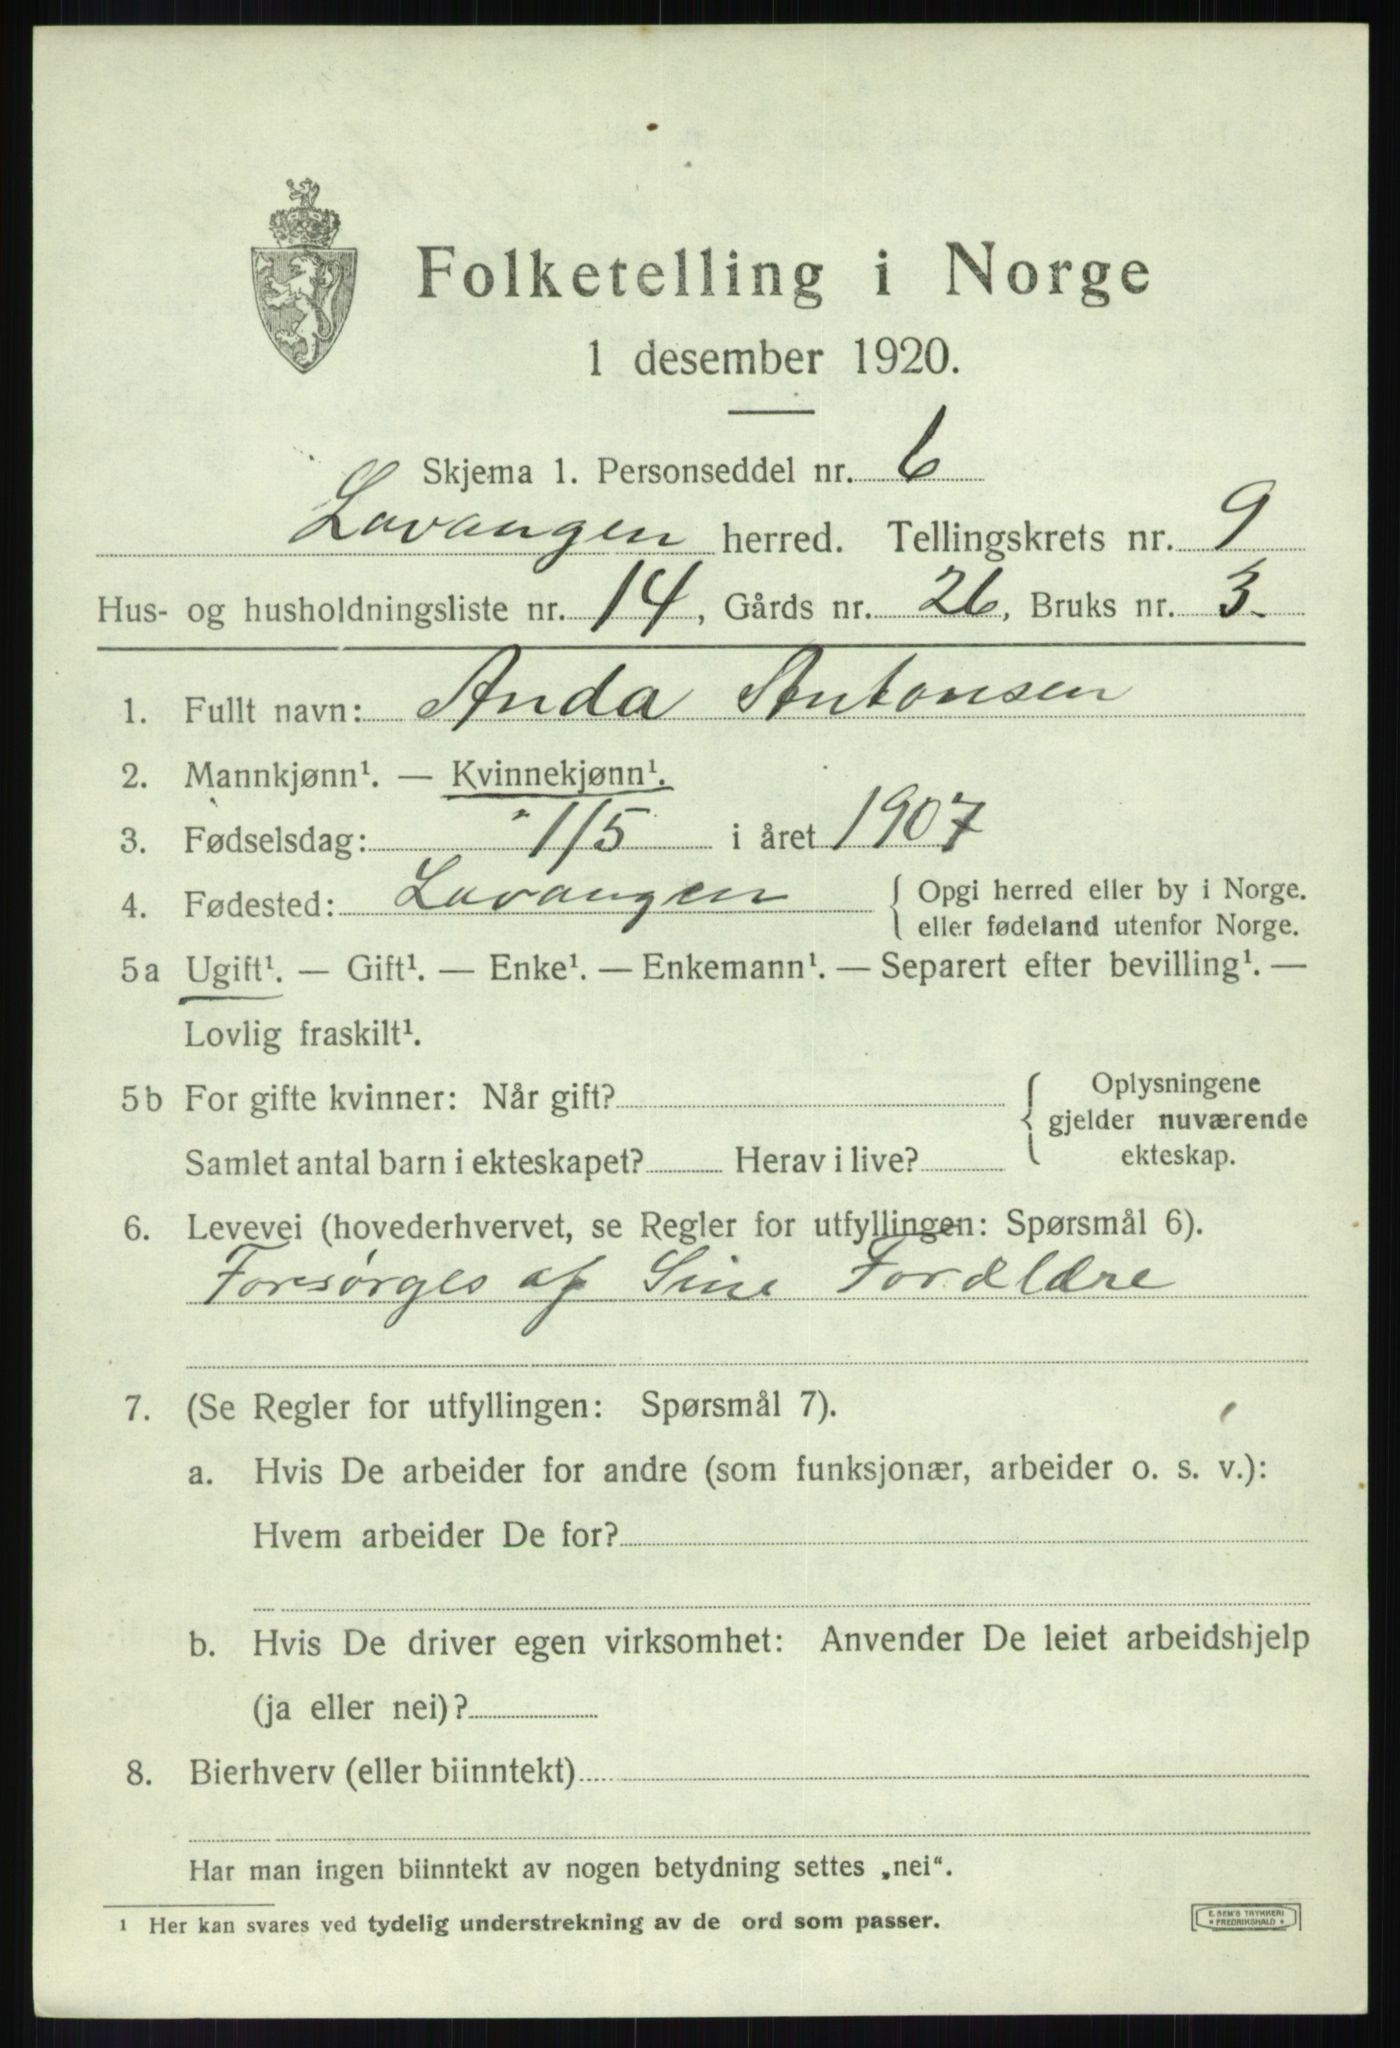 Folketelling i Norge
1 desember 1920.
Skjema 1. Personseddel nr. 6
Lavangen herred. Tellingskrets nr. 9
Hus- og husholdningsliste nr. 14, Gårds nr. 26, Bruks nr. 3
1. Fullt navn: Anda Antonsen
2. Mannkjønn¹. — Kvinnekjønn¹.
3. Fødselsdag: 1/5 i året 1907
4. Fødested: Lavangen { Opgi herred eller by i Norge.
eller fødeland utenfor Norge.
5a Ugift¹. — Gift¹. — Enke¹. — Enkemann¹. — Separert efter bevilling¹. —
Lovlig fraskilt¹.
5b For gifte kvinner: Når gift? { Oplysningene
gjelder nuværende
Samlet antal barn i ekteskapet? Herav i live? ekteskap.
6. Levevei (hovederhvervet, se Regler for utfyllingen: Spørsmål 6).
Forsørges af Sine Forældre
7. (Se Regler for utfyllingen: Spørsmål 7).
a. Hvis De arbeider for andre (som funksjonær, arbeider o. s. v.):
Hvem arbeider De for?
b. Hvis De driver egen virksomhet: Anvender De leiet arbeidshjelp
(ja eller nei)?
8. Bierhverv (eller biinntekt)
Har man ingen biinntekt av nogen betydning settes „nei“.
¹ Her kan svares ved tydelig understrekning av de ord som passer.
E. SEM'S TRYKKERI
FREDRIKSHALD